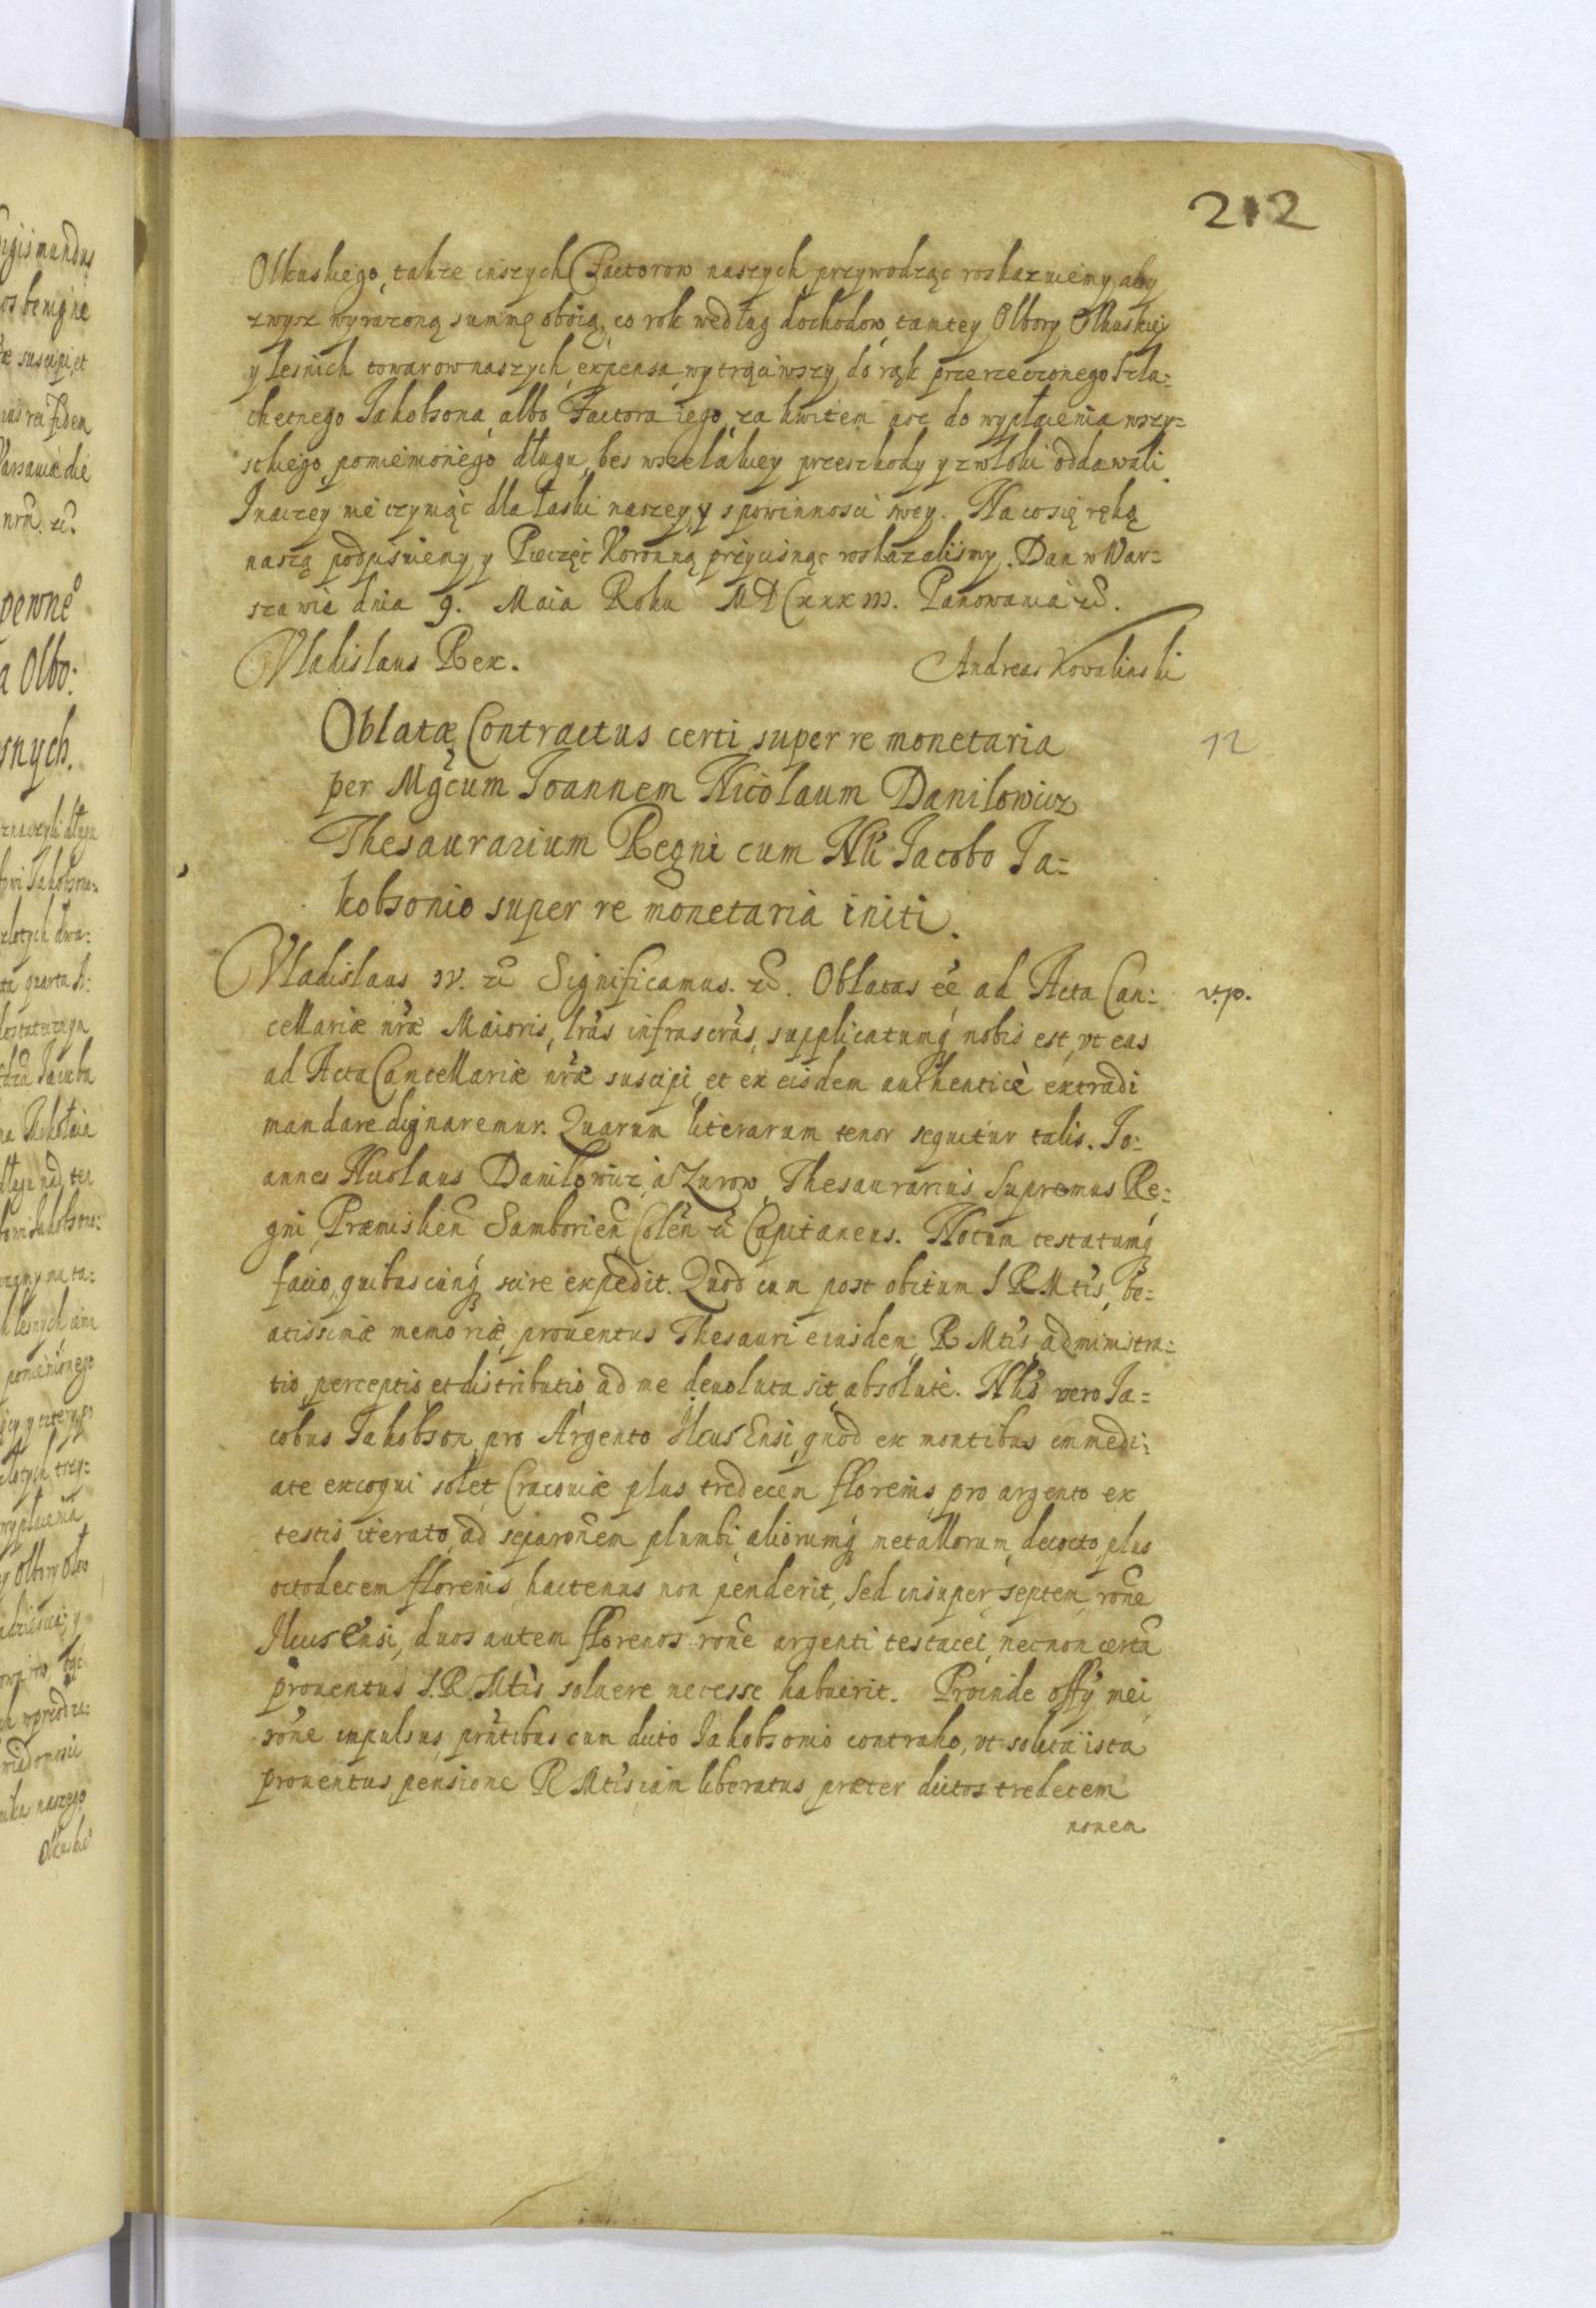 212
Olkuskiego, także inszych Factorow naszych przywodząc roskazuiemy, aby
zwysz wyrażoną summę oboią, co rok według dochodow, tamtey Olbory Olkuskiey
y leśnich towarow naszych, expensa wytrąciwszy, do rąk przerzeczonego Szla=
chetnego Jakobsona, albo Factora iego, za kwitem asz do wypłacenia wszy=
stkiego pomienionego długu, bes wszelakiey przeszkody y zwłoki oddawali.
Inaczey nie czyniąc dla łaski naszey, y s powinnosci swey. Na co się ręką
naszą podpisuiemy, y Pieczęć Koronną przycisnąc roskazalismy. Dan w War=
szawie dnia 9. Maia Roku MDCxxxIII. Panowania &c.
Vladislaus Rex. Andreas Kowalinski
Oblatæ Contractus certi super re monetaria
12
per Mgcum Joannem Nicolaum Danilowicz
Thesaurarium Regni cum Nli Jacobo Ja=
kobsonio super re monetaria initi.
Vladislaus IV. &c Significamus. &c. Oblatas eé ad Acta Can=
v.p.
cellariæ nræ Maioris, lras infrascras, supplicatumq nobis est, vt eas
ad Acta Cancellariæ nræ suscipi, et ex eisdem authenticè extradi
mandare dignaremur. Quarum literarum tenor sequitur talis. Jo=
annes Nicolaus Danilowicz, à Zurow, Thesaurarius Supremus Re=
gni, Præmislien Samborien, Colen &c Capitaneus. Notum testatumq
facio, quibuscunq scire expedit. Quod cum post obitum S R Mtis, be=
atissimæ memoriæ, prouentus Thesauri eiusdem R Mtis, administra=
tio, perceptio, et distributio, ad me deuoluta sit, absolutè. Nlis vero Ja=
cobus Jakobson, pro Argento Ilcus Ensi, quod ex montibus immedi=
ate excoqui solet, Cracouiæ plus tredecem florenis, pro argento ex
testis iterato, ad separonem plumbi, aliorumq metallorum, decocto, plus
octodecem florenis, hactenus non penderit, Sed insuper, septem, rone
Ilcus Ensi, duos autem florenos rone argenti testacei, necnon certa
prouentus S. R. Mtis soluere necesse habuerit. Proinde offy mei,
rone impulsus, pntibus cum dicto Jakobsonio contraho, vt soluta ista
prouentus, pensione R Mtis iam liberatus, præter dictos tredecem
nonem